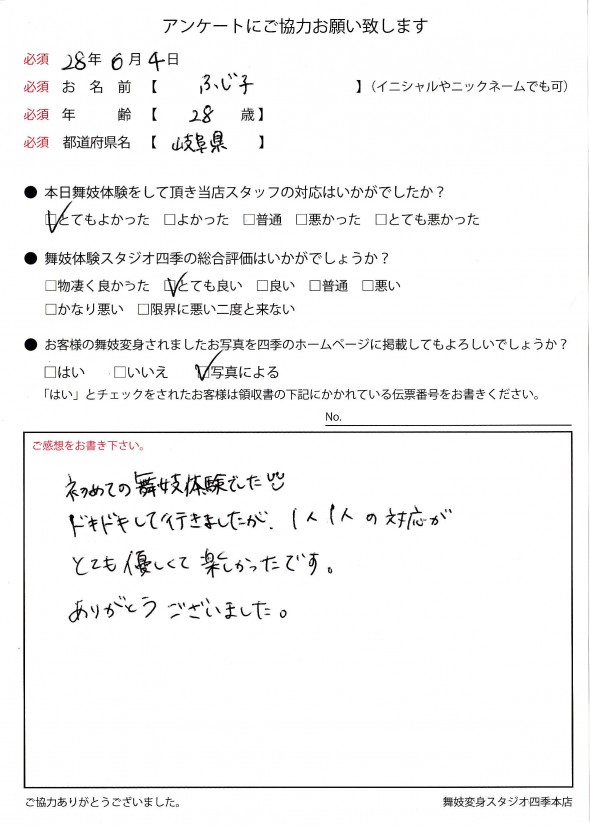 アンケートにご協力お願い致します
必須 28年 6月 4日
必須 お名前 【 ふじ子 】（イニシャルやニックネームでも可）
必須 年齢 【 28 歳】
必須 都道府県名 【 岐阜県 】
● 本日舞妓体験をして頂き当店スタッフの対応はいかがでしたか？
☑とてもよかった □よかった □普通 □悪かった □とても悪かった
● 舞妓体験スタジオ四季の総合評価はいかがでしょうか？
□物凄く良かった ☑とても良い □良い □普通 □悪い
□かなり悪い □限界に悪い二度と来ない
● お客様の舞妓変身されましたお写真を四季のホームページに掲載してもよろしいでしょうか？
□はい □いいえ ☑写真による
「はい」とチェックをされたお客様は領収書の下記にかかれている伝票番号をお書きください。
No.
ご感想をお書き下さい。
初めての舞妓体験でした
ドキドキして行きましたが、1人1人の対応が
とても優しくて楽しかったです。
ありがとうございました。
ご協力ありがとうございました。
舞妓変身スタジオ四季本店